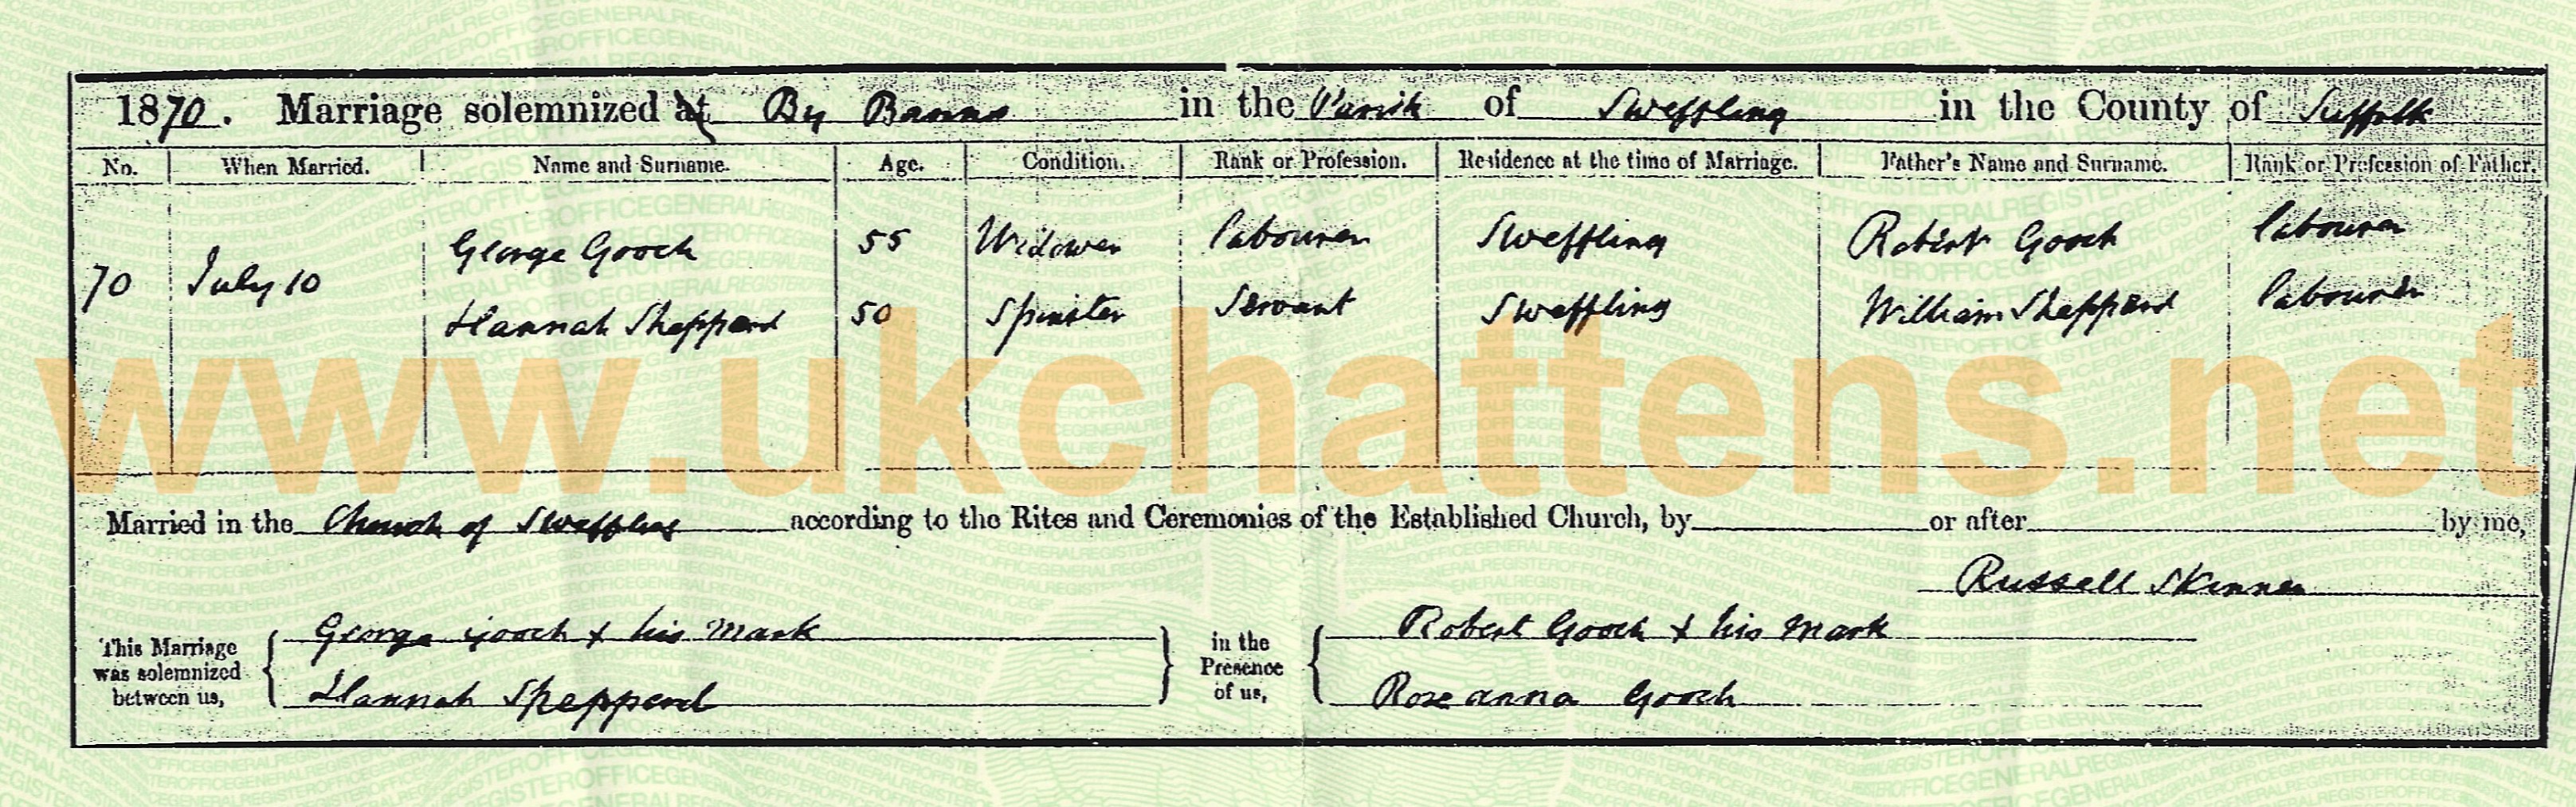 1870. Marriage solemnized at By Banns in the Parish of Sweffling in the County of Suffolk
No. When Married. Name and Surname. Age. Condition. Rank or Profession. Residence at the time of Marriage. Father's Name and Surname. Rank or Profession of Father.
70 July 10 George Gooch 55 Widower labourer Sweffling Robert Gooch labourer
Hannah Shepperd 50 Spinster Servant Sweffling William Shepperd labourer
www.ukchattens.net
Married in the Church of Sweffling according to the Rites and Ceremonies of the Established Church, by or after by me,
Russell Skinner
This Marriage was solemnized between us, George Gooch x his mark in the Presence of us, Robert Gooch x his mark
Hannah Shepperd Roseanna Gooch